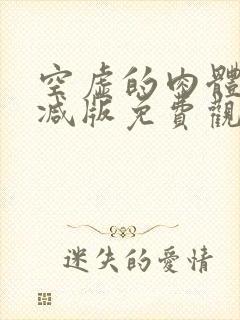 空虛的肉體
减版免費觀
迷失的愛情